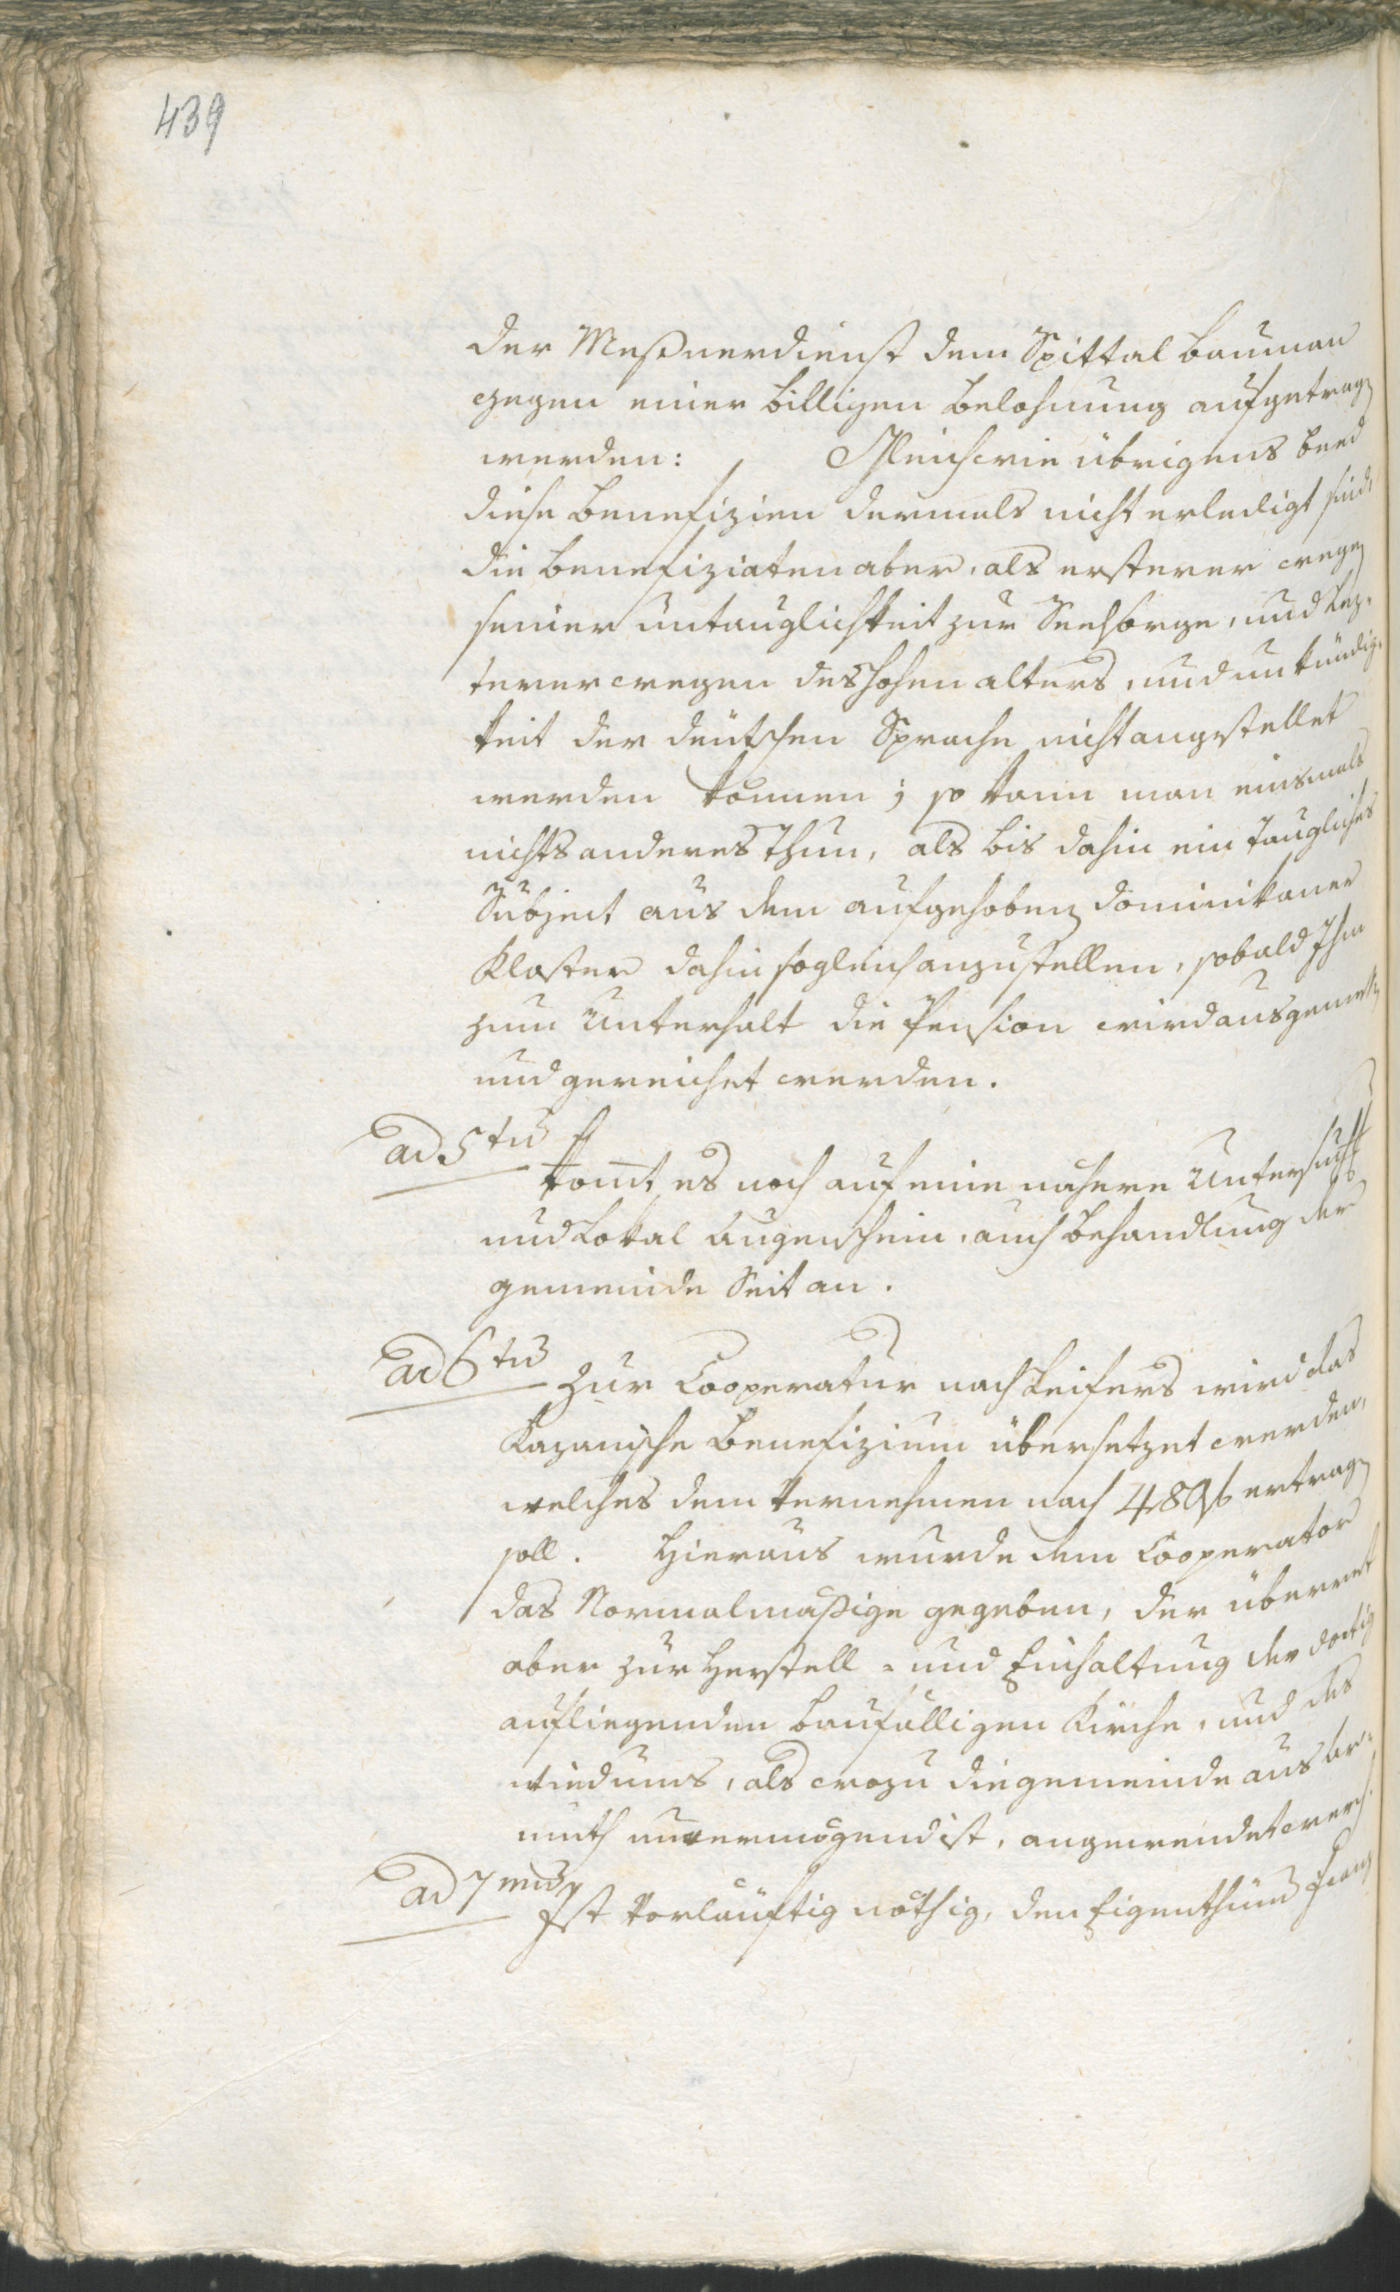 439
der Meßnerdienst dem Spittal Bauman
gegen einer billigen Belohnung aufgetragen
werden: Gleichwie übrigens beed
diese Benefizien dermals nicht erledigt sind,
die Benefiziaten aber, als ersterer wegen
seiner Untauglichkeit zur Seelsorge, und lez-
terer wegen des hohen alters, und unkündig-
keit der deutschen Sprache nicht angestellet
werden können; so kann man einsmals
nichts anderes thun, als bis dahin ein taugliches
Subject aus dem aufgehobenen Dominikaner
Kloster dahin sogleich anzustellen, sobald Ihm
zum Unterhalt die Pension wird
und gereichet werden.
ad 5tu
kommt es noch auf eine nähere Untersuch
und Lokal Augenschein, auch Behandlung der
gemeinde Seit an.
ad 6tu
Zur Cooperatur nach Leifers wird das
Kazanische Benefizium übersetzet werden,
welches dem Vernehmen nach 489 f ertragen
soll. Hieraus wurde dem Cooperator
das Normalmäßige gegeben, der überrest
aber zur Herstell- und Einhaltung der dortig
aufliegenden baufälligen Kirche, und des
Widums, als wozu die gemeinde aus Ar-
muth unvermögend ist, angewendet werd.
ad 7mu
Ist vorläuftig nöthig, den Eigenthum